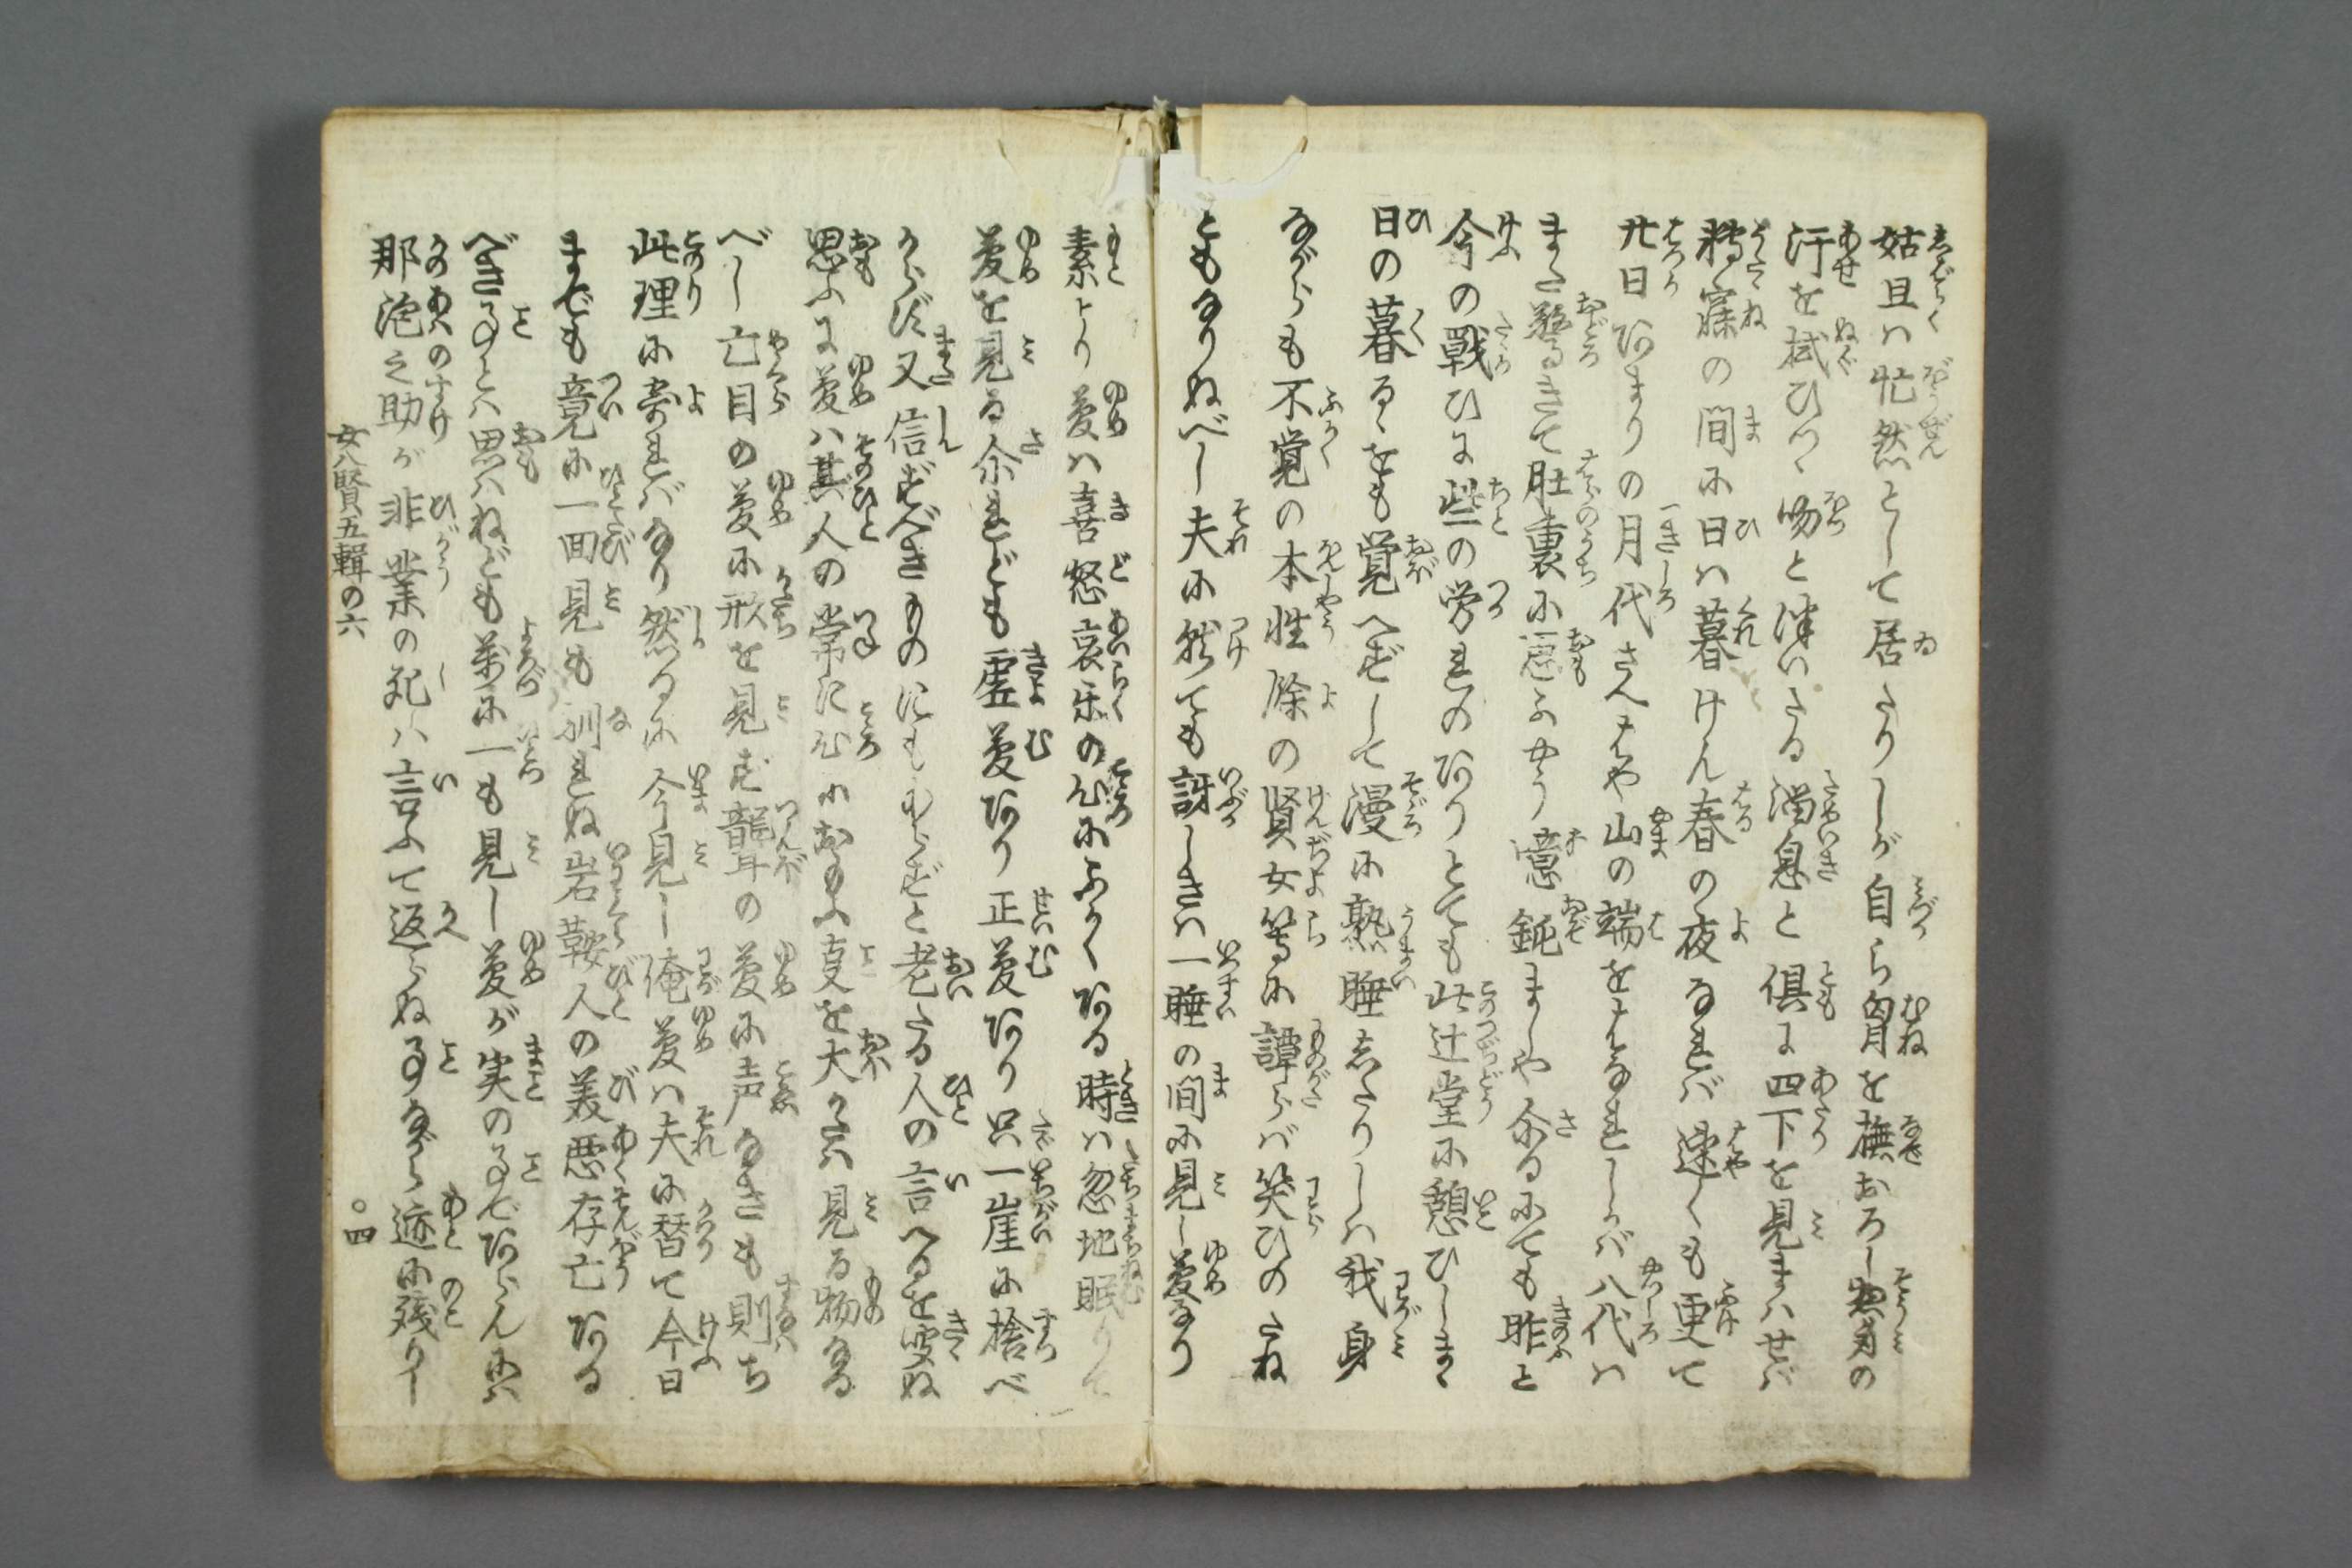 姑且ハ忙然として居たりしが自ら胸を撫おろし惣身の
汗を拭ひつゝ吻と津いたる溜息と倶に四下を見まハせバ
轉寐の間に日ハ暮けん春の夜なれバ速くも更て
廿日あまりの月代さへはや山の端をはなれしかバ八代ハ
また驚るきて肚裏に意ふやう噫鈍ましや尒るにても昨と
今の戦ひに些の労れのありとても此辻堂に憩ひしまゝ
日の暮るゝをも覚へずして漫に熟睡したりしハ我身
ながらも不覚の本性除の賢女等に譚らバ笑ひのたね
ともなりぬべし夫に就ても訝しきハ一睡の間に見し夢なり
素より夢ハ喜怒哀楽の心にふかくある時ハ忽地眠りて
夢を見る尒れども虚夢あり正夢あり只一崖に捨べ
からず又信ずべきものにもあらずと老たる人の言へるを聞ぬ
思ふに夢ハ其人の常に心におもふ事を大かたハ見る物なる
べし亡目の夢に形を見ず聾の夢に声なきも則ち
此理に寄れバなり然るに今見し俺夢ハ夫に替て今日
までも竟に一回見も馴れぬ岩鞍人の美悪存亡ある
べき事とハ思ハねども万に一も見し夢が実の事であらんにハ
那泡之助が非業の死ハ言ふて返らぬ事ながら迹に残りし
女八賢五輯の六
〇四